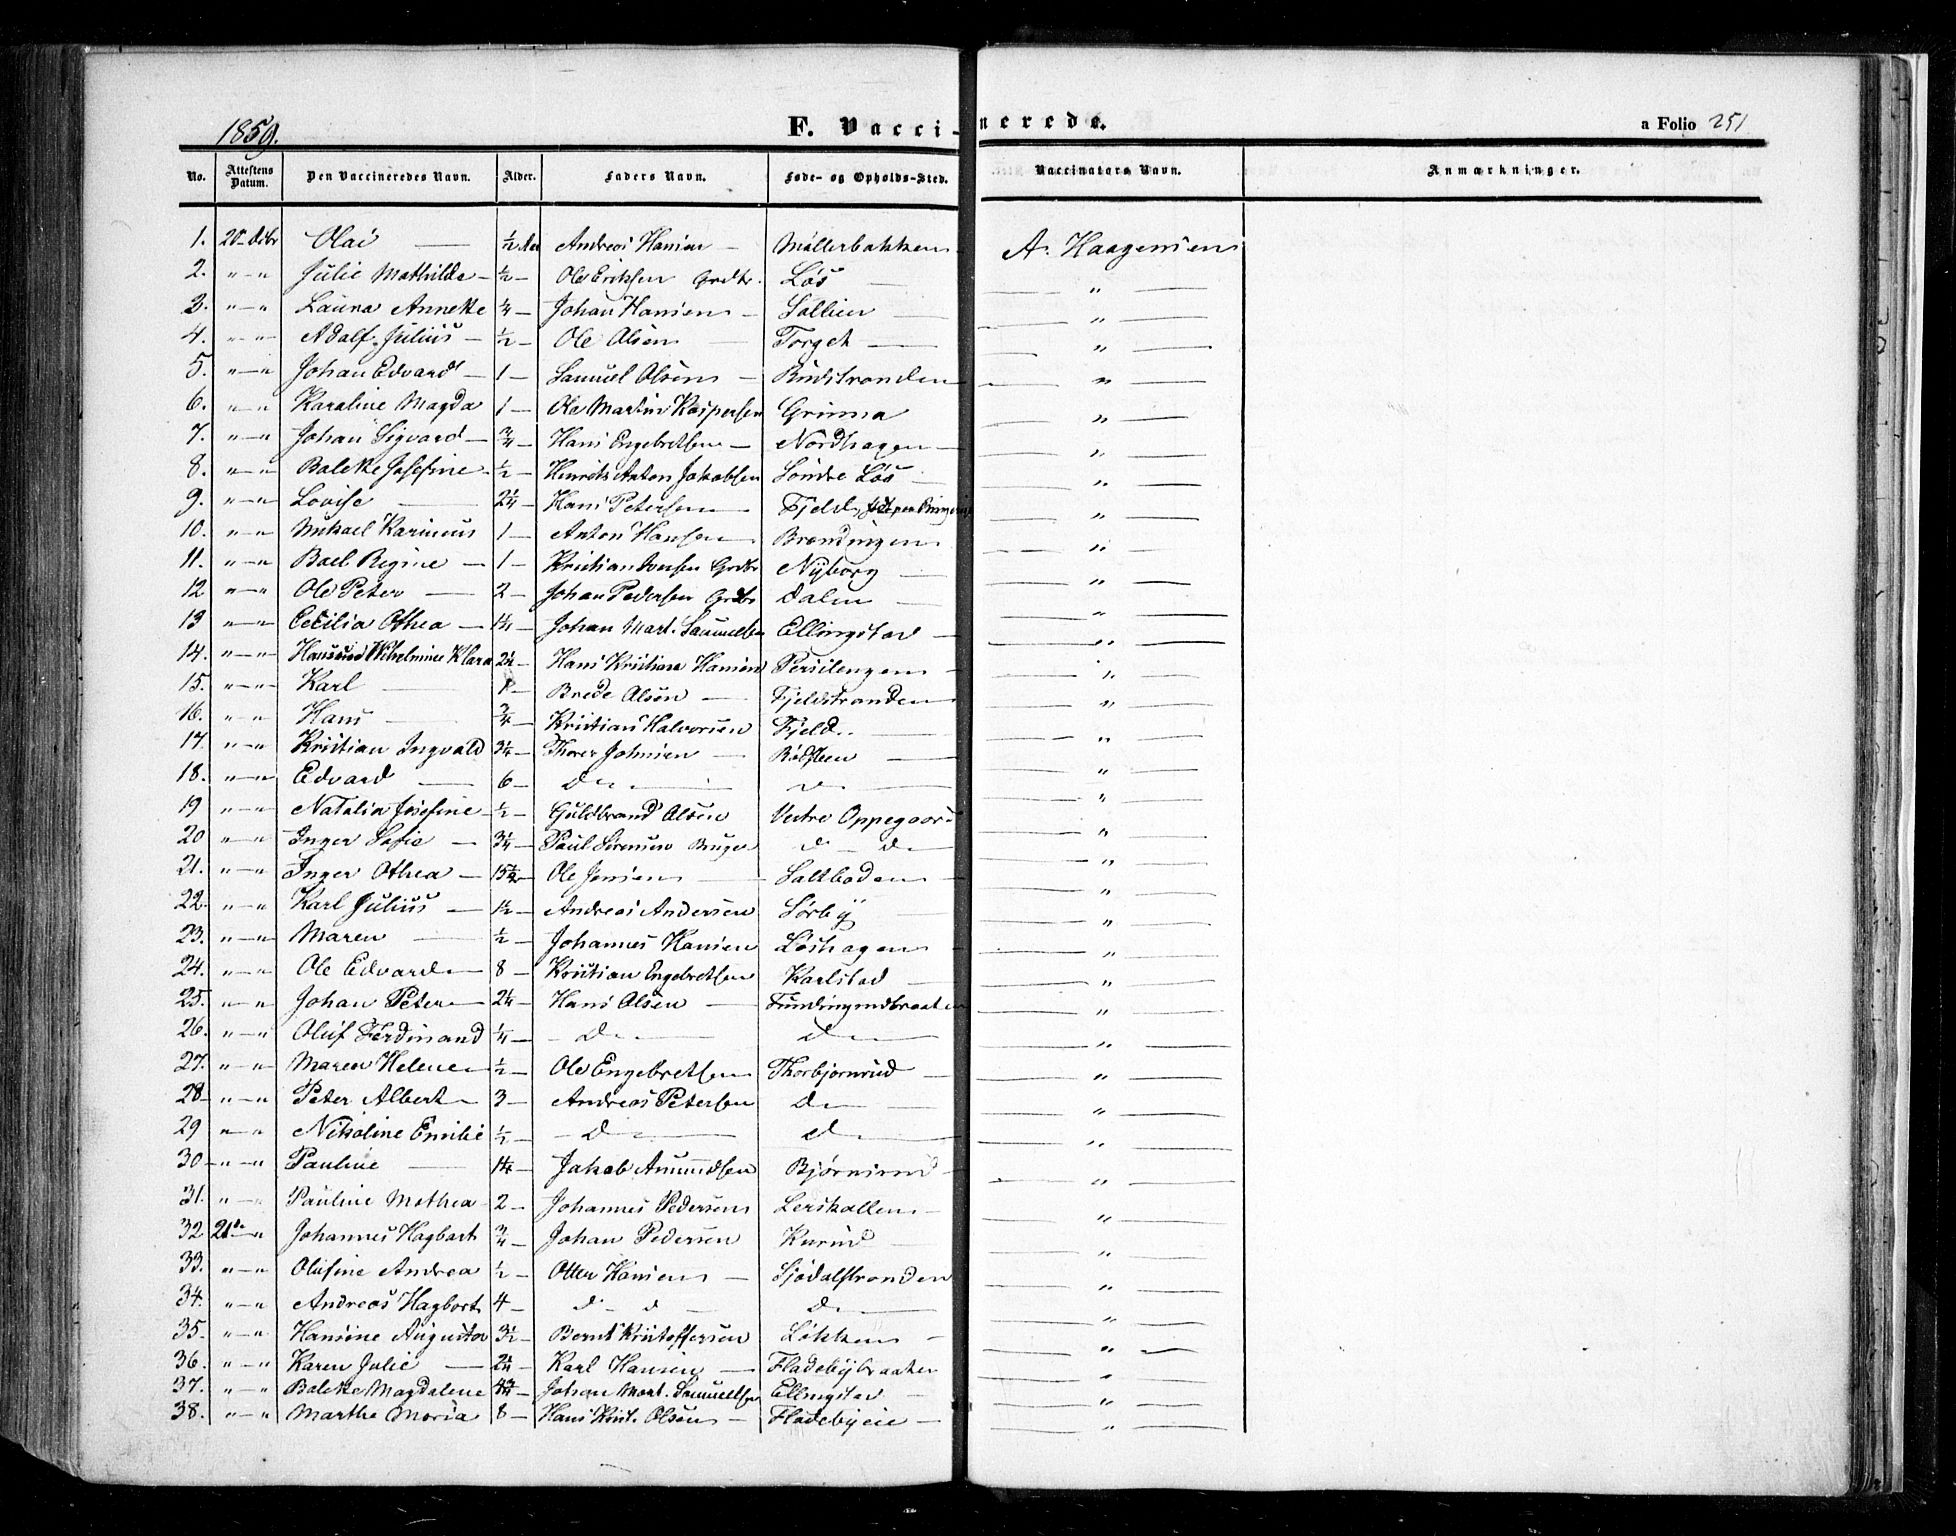 1859. F. Vaccinerede. a Folio 251
No. | Attestens Datum. | Den Vaccineredes Navn. | Alder. | Faders Navn. | Føde- og Opholds-Sted. | Vaccinators Navn. | Anmærkninger.
1. | 20 Decbr | Olai — | ½ | Andreas Hansen — | Møllerbakken | A. Haagensen
2. | " — " | Julie Mathilde — | ½ — | Ole Eriksen Grdbr. | Løs — | — " —
3. | " — " | Laura Annette | ¼ — | Johan Hansen — | Sollien — | — " —
4. | " — " | Adolf Julius — | ½ — | Ole Olsen — | Torget — | — " —
5. | " — " | Johan Edvard — | 1 — | Samuel Olsen — | Rudstranden | — " —
6. | " — " | Karoline Magda | 1 — | Ole Martin Kaspersen | Grinna | — " —
7. | " — " | Johan Sigvard — | ¾ — | Hans Engebretsen — | Nordhagen — | — " —
8. | " — " | Bolette Josefine | ½ — | Henrik Anton Jakobsen | Søndre Løs — | — " —
9. | " — " | Lovise — | 2¼ — | Hans Petersen — | Fjeld, | — " —
10. | " — " | Mikael Karinius | 1 — | Anton Hansen | Brændingen | — " —
11. | " — " | Boel Regine — | 1 — | Kristian Iversen Grdbr | Nyborg — | — " —
12 | " — " | Ole Peter — | 2 — | Johan Pedersen Grdbr | Dalen — | — " —
13 | " — " | Cecilia Othea — | 1¼ — | Johan Mart. Samuelsen | Ellingstad — | — " —
14. | " — " | Wilhelmine Klara | 2¼ — | Hans Kristian Hansen | Persilengen — | — " —
15. | " — " | Karl — | 1 — | Brede Olsen — | Fjeldstranden | — " —
16. | " — " | Hans — | ¾ — | Kristian Halvorsen | Fjeld — | — " —
17. | " — " | Kristian Ingvald | 3¼ — | Thorer Johnsen — | Rødsteen — | — " —
18. | " — " | Edvard — | 6 — | d — | d — | — " —
19 | " — " | Natalia Josefine — | ½ — | Guldbrand Olsen | Vestre Oppegaard | — " —
20 | " — " | Inger Sofie — | 3¼ — | Paul Sörensen Bruger | d — d — | — " —
21. | " — " | Inger Othea — | 15½ — | Ole Jensen — | Saltboden — | — " —
22. | " — " | Karl Julius — | 1½ — | Andreas Andersen | Sørby | — " —
23. | " — " | Maren — | ½ — | Johannes Hansen | Løshagen — | — " —
24. | " — " | Ole Edvard — | 8 — | Kristian Engebretsen | Karlstad — | — " —
25. | " — " | Johan Peter — | 2¼ — | Hans Olsen — | | — " —
26. | " — " | Oluf Ferdinand | ¼ — | — d — | d — | — " —
27. | " — " | Maren Helene — | ½ — | Ole Engebretsen | Thorbjørnrud — | — " —
28 | " — " | Peter Albert — | 3 — | Andreas Petersen | d — | — " —
29 | " — " | Nikoline Emilie | ½ — | — d — | d — | — " —
30 | " — " | Pauline — | 1¼ — | Jakob Amundsen | Bjørnsrud — | — " —
31. | " — " | Pauline Mathea | 2 — | Johannes Pedersen | Lerskallen — | — " —
32 | 21de — " | Johannes Hagbart | ¾ — | Johan Pedersen | Kurud — | — " —
33. | " — " | Olufine Andrea | ½ — | Otter Hansen — | Sjødalstranden | — " —
34. | " — " | Andreas Hagbart | 4 — | d — d — | d — | — " —
35. | " — " | Hansine Augusta | 3½ — | Bernt Kristoffersen | Løkken — | — " —
36. | " — " | Karen Julie — | 2¼ — | Karl Hansen — | Fladebybraaten | — " —
37. | " — " | Bolette Magdalene | 4¾ — | Johan Mart. Samuelsen | Ellingstad — | — " —
38. | " — " | Marthe Maria | 8 — | Hans Krist. Olsen — | Fladebyeie — | — " —